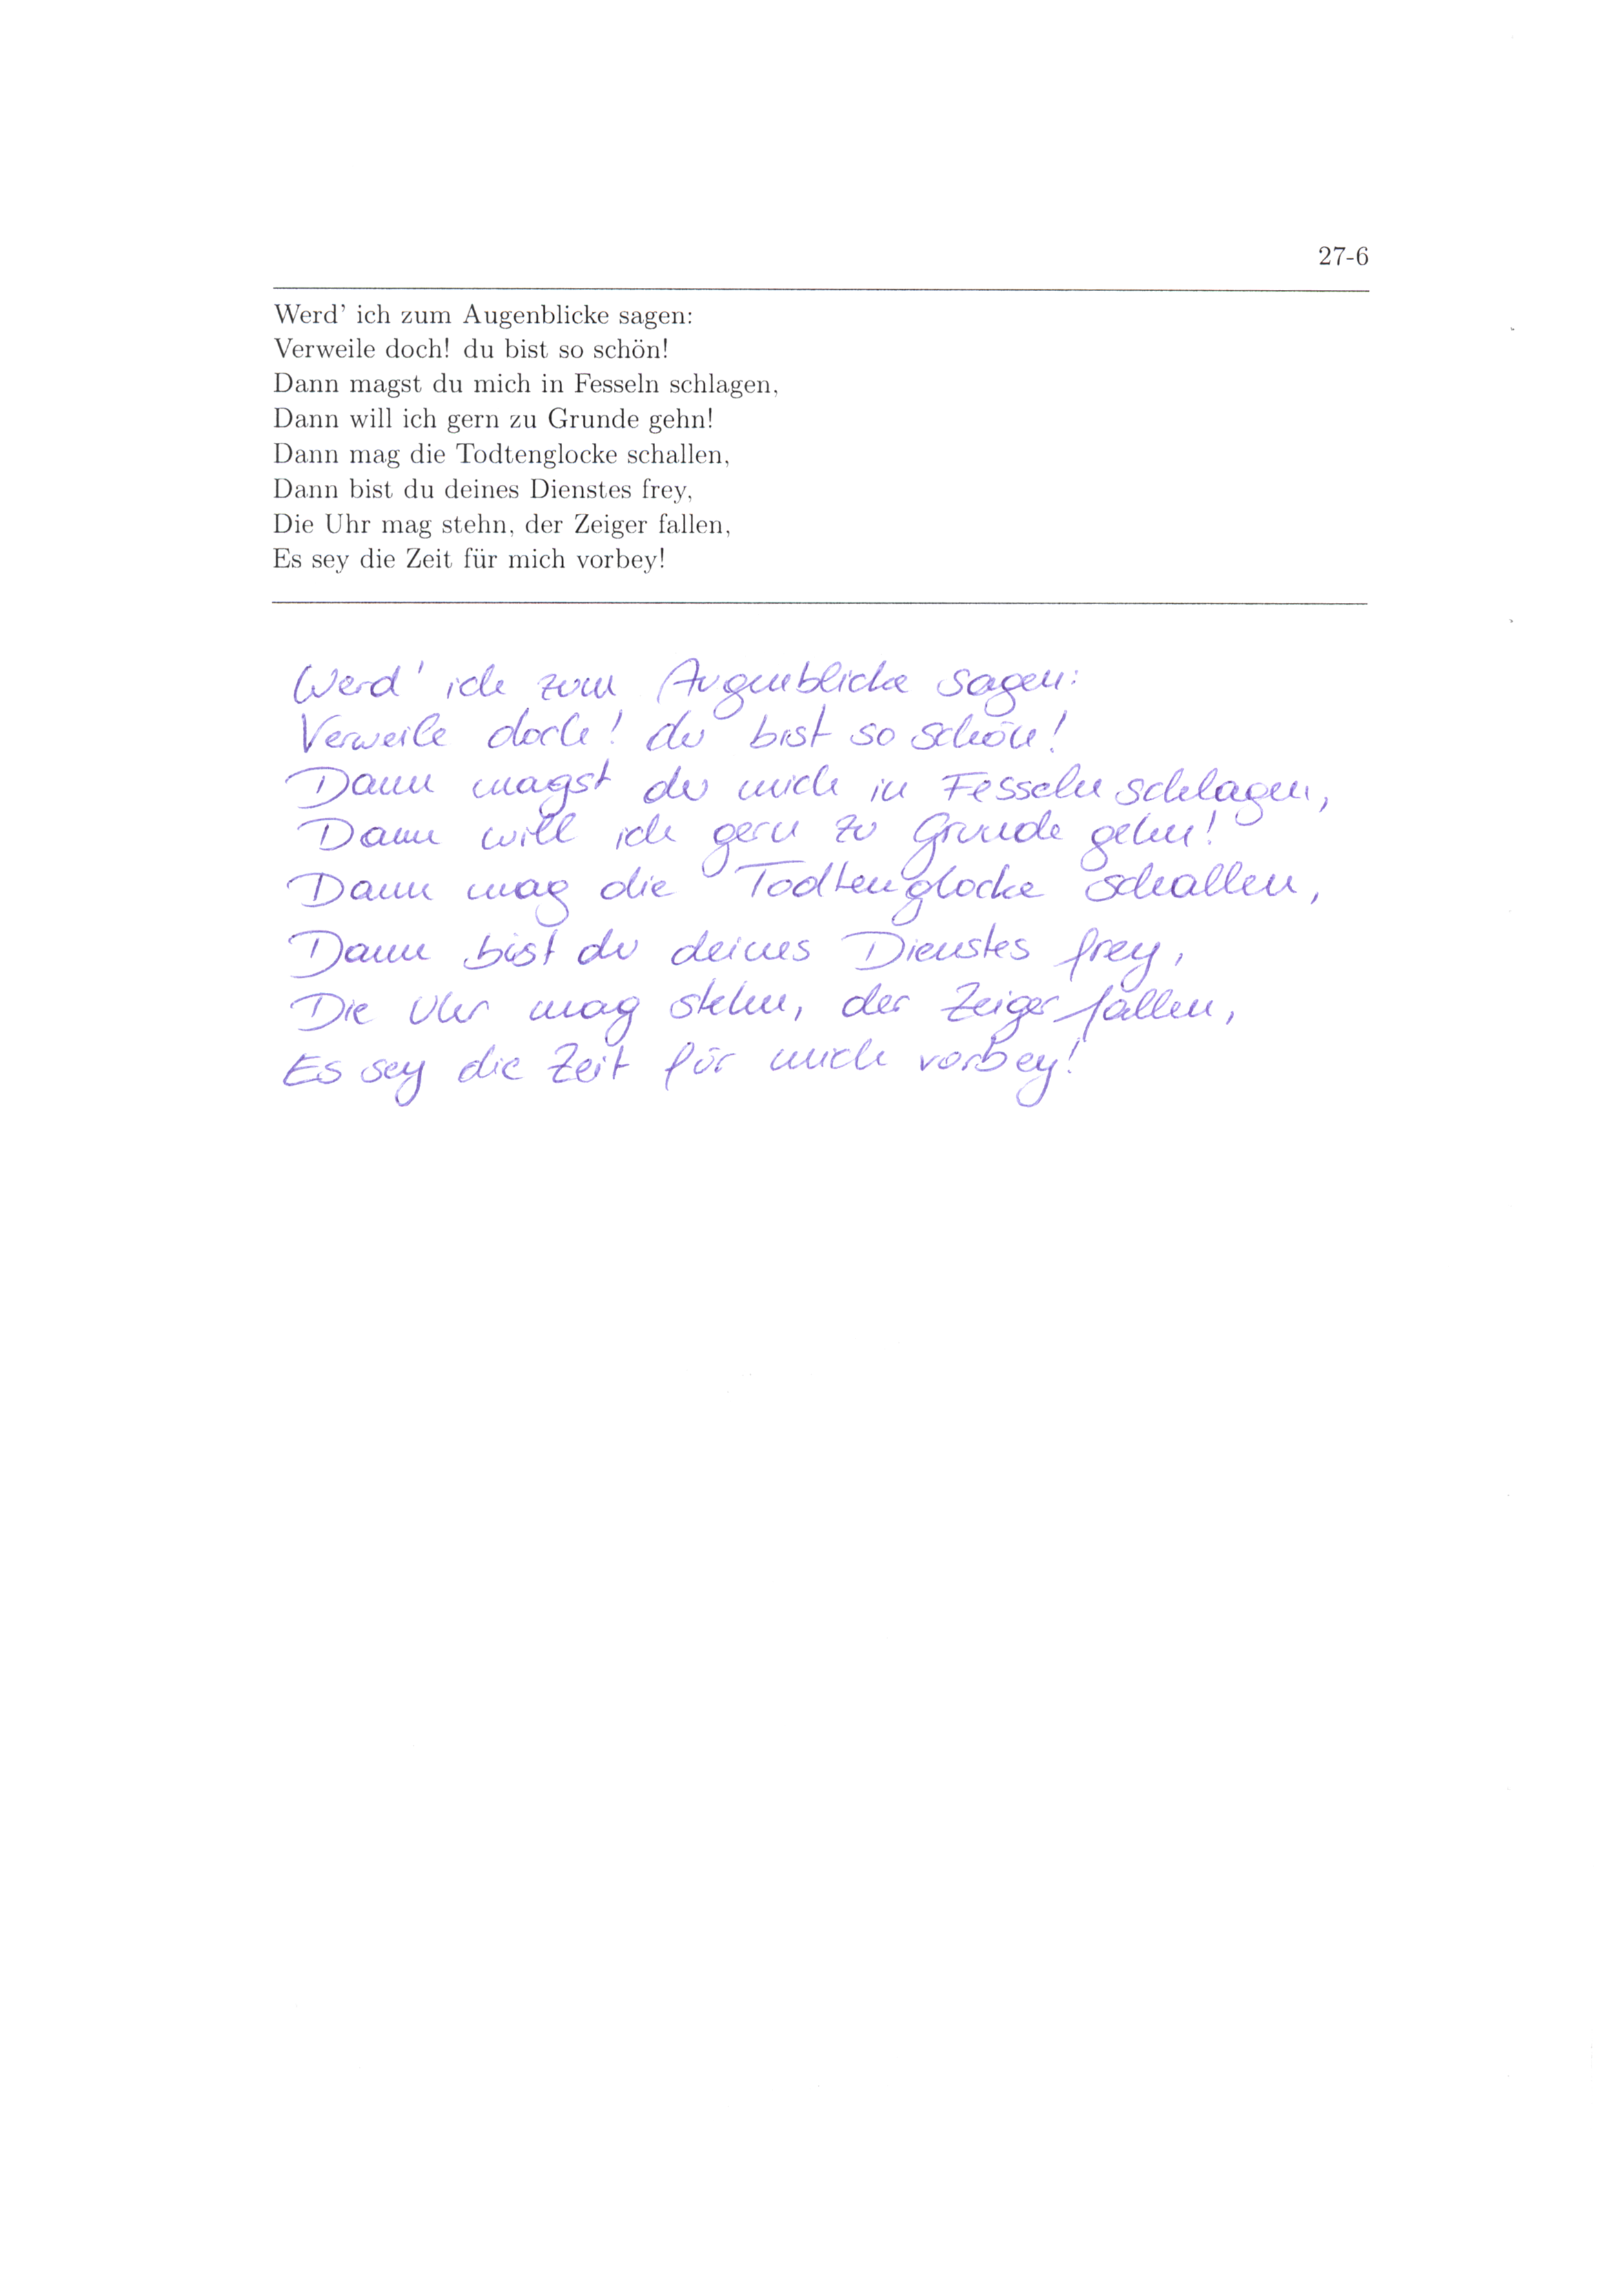 27-6
Werd' ich zum Augenblicke sagen:
Verweile doch! du bist so schön!
Dann magst du mich in Fesseln schlagen,
Dann will ich gern zu Grunde gehn!
Dann mag die Todtenglocke schallen,
Dann bist du deines Dienstes frey,
Die Uhr mag stehn, der Zeiger fallen,
Es sey die Zeit für mich vorbey!
Werd' ich zum Augenblicke sagen:
Verweile doch! du bist so schön!
Dann magst du mich in Fesseln schlagen,
Dann will ich gern zu Grunde gehn!
Dann mag die Todtenglocke schallen,
Dann bist du deines Dienstes frey,
Die Uhr mag stehn, der Zeiger fallen,
Es sey die Zeit für mich vorbey!